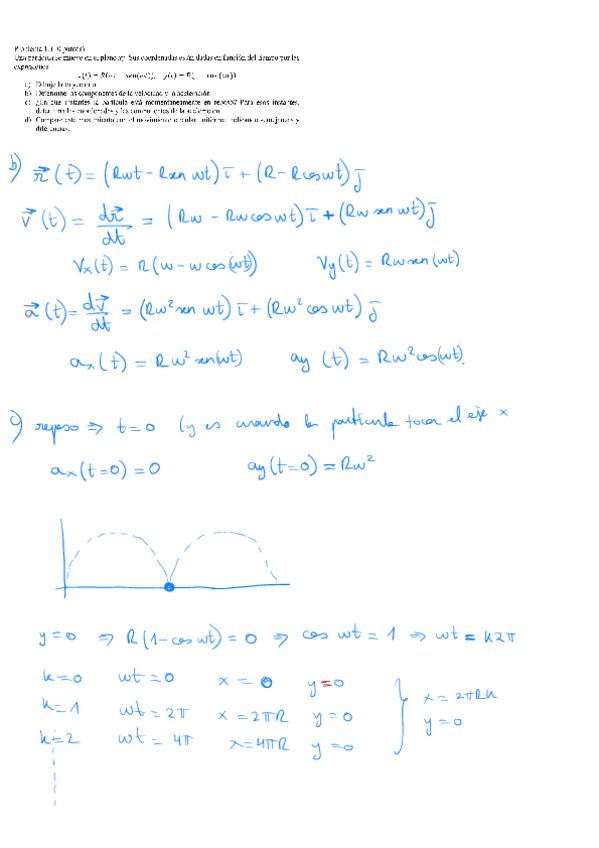 Problema 1. (10 puntos)
Una partícula se mueve en el plano xy. Sus coordenadas están dadas en función del tiempo por las
expresiones
x(t) = R(ωt − sen(ωt)), y(t) = R( − cos(ωt))
a) Dibuje la trayectoria
b) Determine las componentes de la velocidad y la aceleración.
c) ¿En qué instantes la partícula está momentáneamente en reposo? Para esos instantes,
determine las coordenadas y las componentes de la aceleración
d) Compare este movimiento con el movimiento circular uniforme, indicando semejanzas y
diferencias.
b) r⃗(t) = (Rwt − Rsen wt) i̅ + (R − Rcoswt) j̅
v⃗(t) = dr⃗/dt = (Rw − Rwcoswt) i̅ + (Rw sen wt) j̅
Vx(t) = R(w − wcos(wt)) Vy(t) = Rwsen(wt)
a⃗(t) = dv⃗/dt = (Rw² sen wt) i̅ + (Rw² cos wt) j̅
ax(t) = Rw² sen(wt) ay (t) = Rw²cos(wt).
c) reposo ⇒ t=0 (y es cuando la particula toca el eje x
ax(t=0) = 0 ay(t=0) = Rw²
y=0 ⇒ R(1−coswt) = 0 ⇒ cos wt = 1 ⇒ wt = k2π
k=0 wt=0 x = 0 y=0
k=1 wt=2π x = 2πR y=0 x = 2πRk
k=2 wt=4π x=4πR y=0 y=0